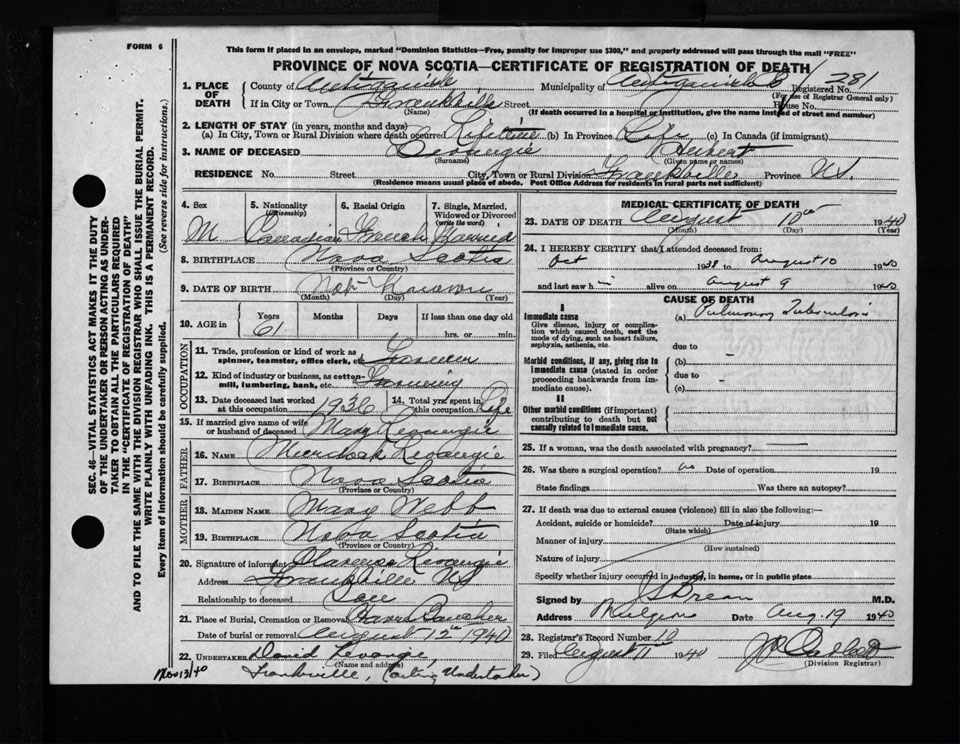 FORM 6
This form if placed in an envelope, marked "Dominion Statistics—Free, penalty for improper use $300," and properly addressed will pass through the mail "FREE"
PROVINCE OF NOVA SCOTIA—CERTIFICATE OF REGISTRATION OF DEATH
1. PLACE OF DEATH County of Antigonish Municipality of Antigonish Registered No. 281
(For use of Registrar General only)
If in City or Town Frankville Street House No.
(Name) (If death occurred in a hospital or institution, give the name instead of street and number)
2. LENGTH OF STAY (in years, months and days)
(a) In City, Town or Rural Division where death occurred Lifetime (b) In Province Life (c) In Canada (if immigrant)
3. NAME OF DECEASED Levangie Hubert
(Surname) (Given name or names)
RESIDENCE No. Street City, Town or Rural Division Frankville Province N.S.
(Residence means usual place of abode. Post Office Address for residents in rural parts not sufficient)
4. Sex M
5. Nationality (Citizenship) Canadian
6. Racial Origin French
7. Single, Married, Widowed or Divorced (write the word) Married
8. BIRTHPLACE Nova Scotia
(Province or Country)
9. DATE OF BIRTH Not Known
(Month) (Day) (Year)
10. AGE in Years Months Days If less than one day old
61 hrs. or min.
OCCUPATION
11. Trade, profession or kind of work as spinner, teamster, office clerk, etc. Farmer
12. Kind of industry or business, as cotton-mill, lumbering, bank, etc. Farming
13. Date deceased last worked at this occupation 1936 14. Total yrs. spent in this occupation Life
15. If married give name of wife or husband of deceased Mary Levangie
FATHER
16. NAME Levangie
17. BIRTHPLACE Nova Scotia
(Province or Country)
MOTHER
18. MAIDEN NAME Mary Webb
19. BIRTHPLACE Nova Scotia
(Province or Country)
20. Signature of informant Levangie
Address Frankville NS
Relationship to deceased Son
21. Place of Burial, Cremation or Removal
Date of burial or removal August 12th 1940
22. UNDERTAKER David Levangie
(Name and address)
Frankville, (acting Undertaker)
Nov 13/40
MEDICAL CERTIFICATE OF DEATH
23. DATE OF DEATH August 10th 1940
(Month) (Day) (Year)
24. I HEREBY CERTIFY that I attended deceased from
Oct 1938 to August 10 1940
and last saw h im alive on August 9 1940
CAUSE OF DEATH
I
Immediate cause (a) Pulmonary Tuberculosis
Give disease, injury or complication which caused death, not the mode of dying, such as heart failure, asphyxia, asthenia, etc.
due to
Morbid conditions, if any, giving rise to immediate cause (stated in order proceeding backwards from immediate cause).
(b) —
due to —
(c)
II
Other morbid conditions (if important) contributing to death but not causally related to immediate cause.
25. If a woman, was the death associated with pregnancy? —
26. Was there a surgical operation? no Date of operation 19
State findings Was there an autopsy?
27. If death was due to external causes (violence) fill in also the following:—
Accident, suicide or homicide? Date of injury 19
(State which)
Manner of injury
(How sustained)
Nature of injury
Specify whether injury occurred in industry, in home, or in public place
Signed by M.D.
Address Mulgrave Date Aug. 19 1940
28. Registrar's Record Number 10
29. Filed August 11th 1940
(Division Registrar)
SEC. 46—VITAL STATISTICS ACT MAKES IT THE DUTY
OF THE UNDERTAKER OR PERSON ACTING AS UNDERTAKER TO OBTAIN ALL THE PARTICULARS REQUIRED
IN THE "CERTIFICATE OF REGISTRATION OF DEATH"
AND TO FILE THE SAME WITH THE DIVISION REGISTRAR WHO SHALL ISSUE THE BURIAL PERMIT.
WRITE PLAINLY WITH UNFADING INK. THIS IS A PERMANENT RECORD.
Every item of information should be carefully supplied. (See reverse side for instructions.)